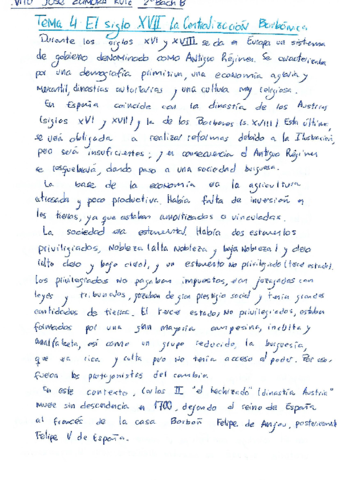 VITO JOSÉ ZAMORA RUIZ 2º Bach B
Tema 4 El siglo XVIII. La Centralización Borbónica
Durante los siglos XVI y XVIII se da en Europa un sistema
de gobierno denominado como Antiguo Régimen. Se caracterizaba
por una demografía primitiva, una economía agraria y
mercantil, dinastías autoritarias y una cultura muy religiosa.
En España coincide con la dinastía de los Austrias
(siglos XVI y XVII) y la de los Borbones (s. XVIII) Esta última,
se verá obligada a realizar reformas debido a la Ilustración,
pero serán insuficientes; y en consecuencia el Antiguo Régimen
se resquebraja, dando paso a una sociedad burguesa.
La base de la economía era la agricultura
atrasada y poco productiva. Había falta de inversión en
las tierras, ya que estaban amortizadas o vinculadas.
La sociedad era estamental. Había dos estamentos
privilegiados, nobleza (alta nobleza y baja nobleza) y clero
(alto clero y bajo clero), y un estamento no privilegiado (tercer estado).
Los privilegiados no pagaban impuestos, eran juzgados con
leyes y tribunales, gozaban de gran prestigio social y tenían grandes
cantidades de tierras. El tercer estado, No privilegiados, estaban
formados por una gran mayoría campesina, inculta y
analfabeta, así como un grupo reducido, la burguesía,
que era rica y culta pero no tenía acceso al poder. Por eso
fueron los protagonistas del cambio.
En este contexto, Carlos II "el hechizado" (dinastía Austria)
muere sin descendencia en 1700, dejando el reino de España
al francés de la casa Borbón Felipe de Anjou, posteriormente
Felipe V de España.